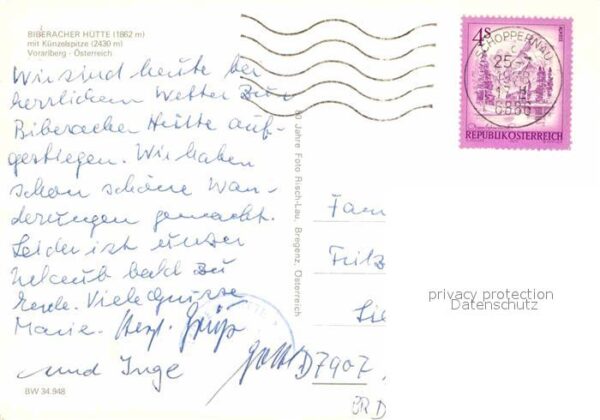 BIBERACHER HÜTTE (1862 m)
mit Künzelspitze (2430 m)
Vorarlberg - Österreich
Wir sind heute bei
herrlichem Wetter zur
Biberacher Hütte auf-
gestiegen. Wir haben
schon schöne Wan-
derungen gemacht.
Leider ist unser
Urlaub bald zu
Ende. Viele Grüsse
Marie. Herzl. Grüß
und Inge
Gott
BW 34.948
Jahre Foto Risch-Lau, Bregenz, Österreich
4S
SCHOPPERNAU
25.-7
17
6886
REPUBLIK ÖSTERREICH
Fam
Fritz
D 7907
BRD
privacy protection
Datenschutz